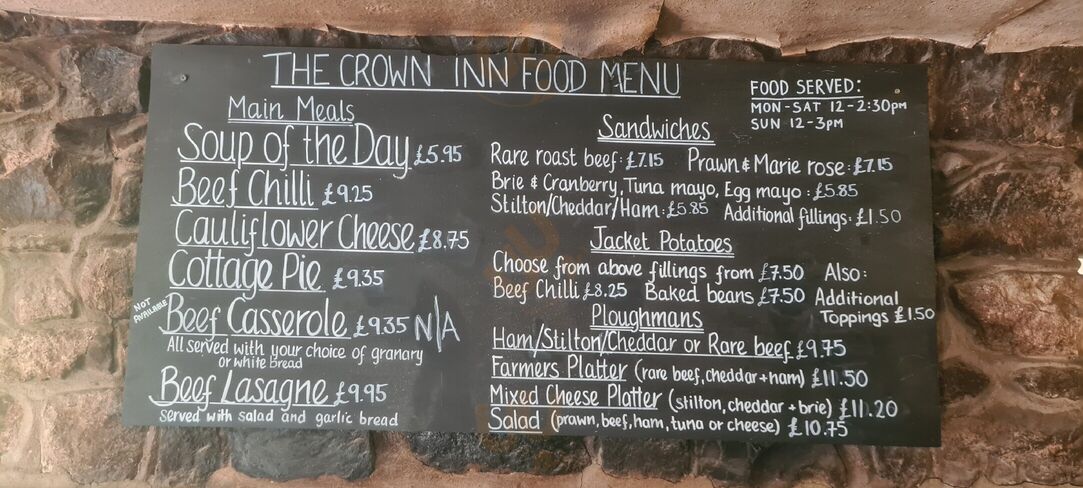 THE CROWN INN FOOD MENU
FOOD SERVED:
MON-SAT 12-2:30PM
SUN 12-3PM
Main Meals
Soup of the Day £5.95
Beef Chilli £9.25
Cauliflower Cheese £8.75
Cottage Pie £9.35
NOT AVAILABLE
Beef Casserole £9.35 N/A
All served with your choice of granary
or white bread
Beef Lasagne £9.95
Served with salad and garlic bread
Sandwiches
Rare roast beef: £7.15 Prawn & Marie rose: £7.15
Brie & Cranberry, Tuna mayo, Egg mayo: £5.85
Stilton/Cheddar/Ham: £5.85 Additional fillings: £1.50
Jacket Potatoes
Choose from above fillings from £7.50 Also:
Beef Chilli £8.25 Baked beans £7.50 Additional
Toppings £1.50
Ploughmans
Ham/Stilton/Cheddar or Rare beef £9.75
Farmers Platter (rare beef, cheddar + ham) £11.50
Mixed Cheese Platter (stilton, cheddar + brie) £11.20
Salad (prawn, beef, ham, tuna or cheese) £10.75